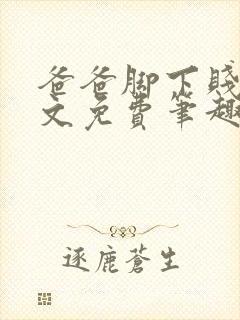 爸爸脚下贱
文免费笔趣
逐鹿苍生